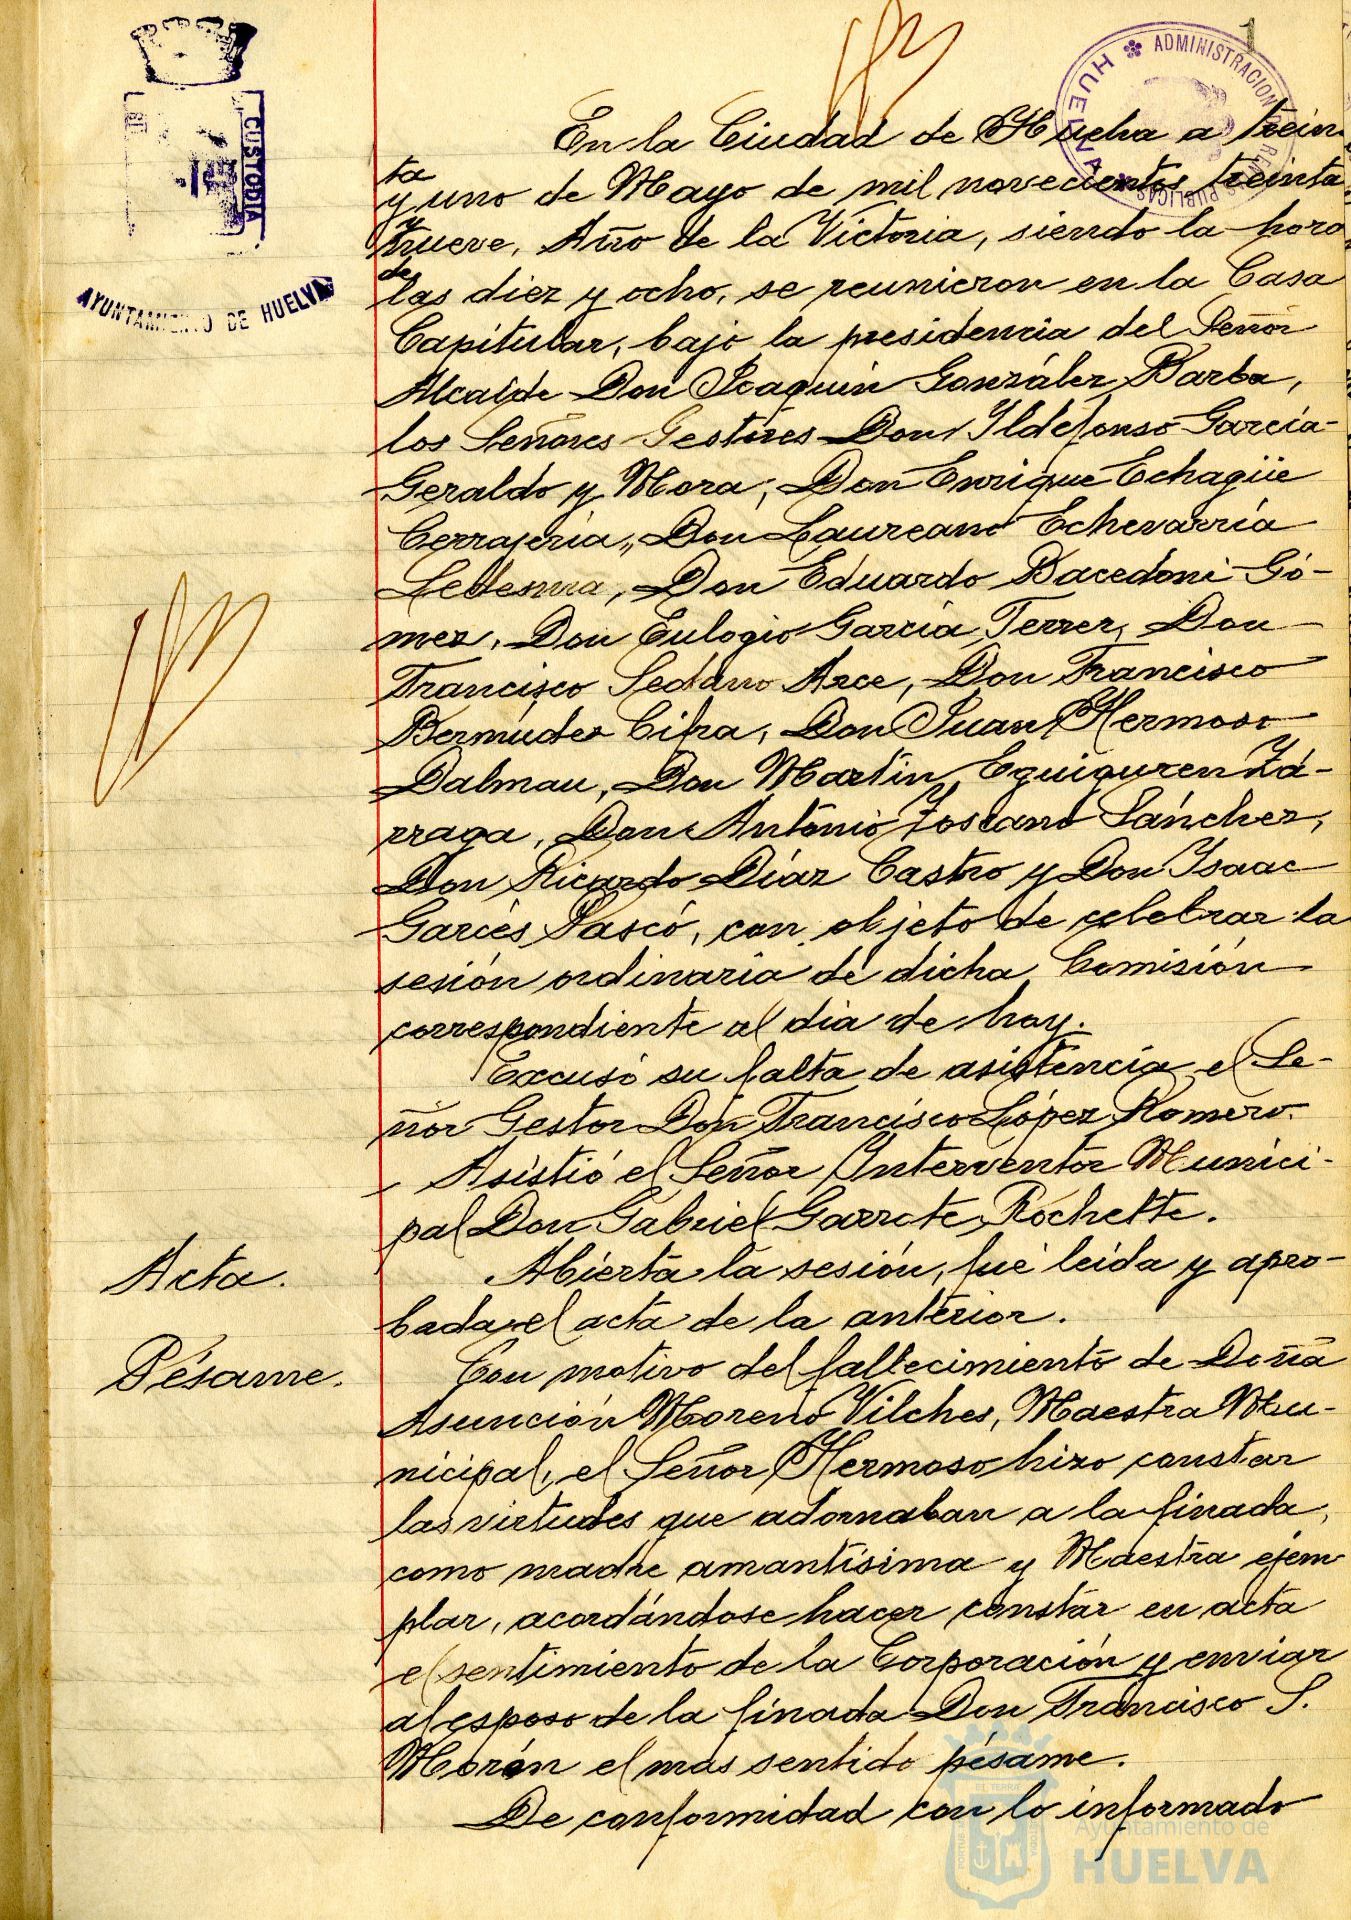 1
ADMINISTRACION DE RENTAS PUBLICAS
HUELVA
CUSTODIA
AYUNTAMIENTO DE HUELVA
En la Ciudad de Huelva a trein
ta
y uno de Mayo de mil novecientos treinta
y
nueve, Año de la Victoria, siendo la hora
de
las diez y ocho, se reunieron en la Casa
Capitular, bajo la presidencia del Señor
Alcalde Don Joaquin González Barba,
los Señores Gestores Don Ildefonso García-
Geraldo y Mora, Don Enrique Echagüe
Cerrajería, Don Laureano Echevarría
Ledesma, Don Eduardo Bacedoni Gó-
mez, Don Eulogio García Ferrer, Don
Francisco Sedano Arce, Don Francisco
Bermúdez Cifra, Don Juan Hermoso
Dalmau, Don Martín Eguiguren Zá-
rraga, Don Antonio Toscano Sánchez,
Don Ricardo Díaz Castro y Don Isaac
Garcés Pascó, con objeto de celebrar la
sesión ordinaria de dicha Comisión
correspondiente al dia de hoy.
Excusó su falta de asistencia el Se-
ñor Gestor Don Francisco López Romero.
Asistió el Señor Interventor Munici-
pal Don Gabriel Garrote Rochette.
Acta.
Abierta la sesión, fué leida y apro-
bada el acta de la anterior.
Pésame.
Con motivo del fallecimiento de Doña
Asunción Moreno Vilches, Maestra Mu-
nicipal, el Señor Hermoso hizo constar
las virtudes que adornaban a la finada,
como madre amantísima y Maestra ejem
plar, acordándose hacer constar en acta
el sentimiento de la Corporación y enviar
al esposo de la finada Don Francisco S.
Morón el mas sentido pésame.
De conformidad con lo informado
Ayuntamiento de
HUELVA